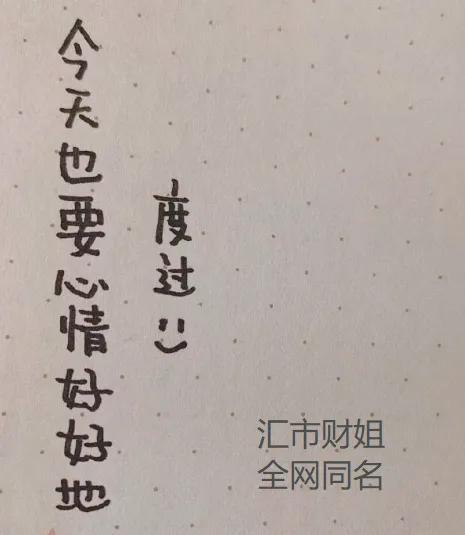 今天也要心情好好地
度过:)
汇市财姐
全网同名